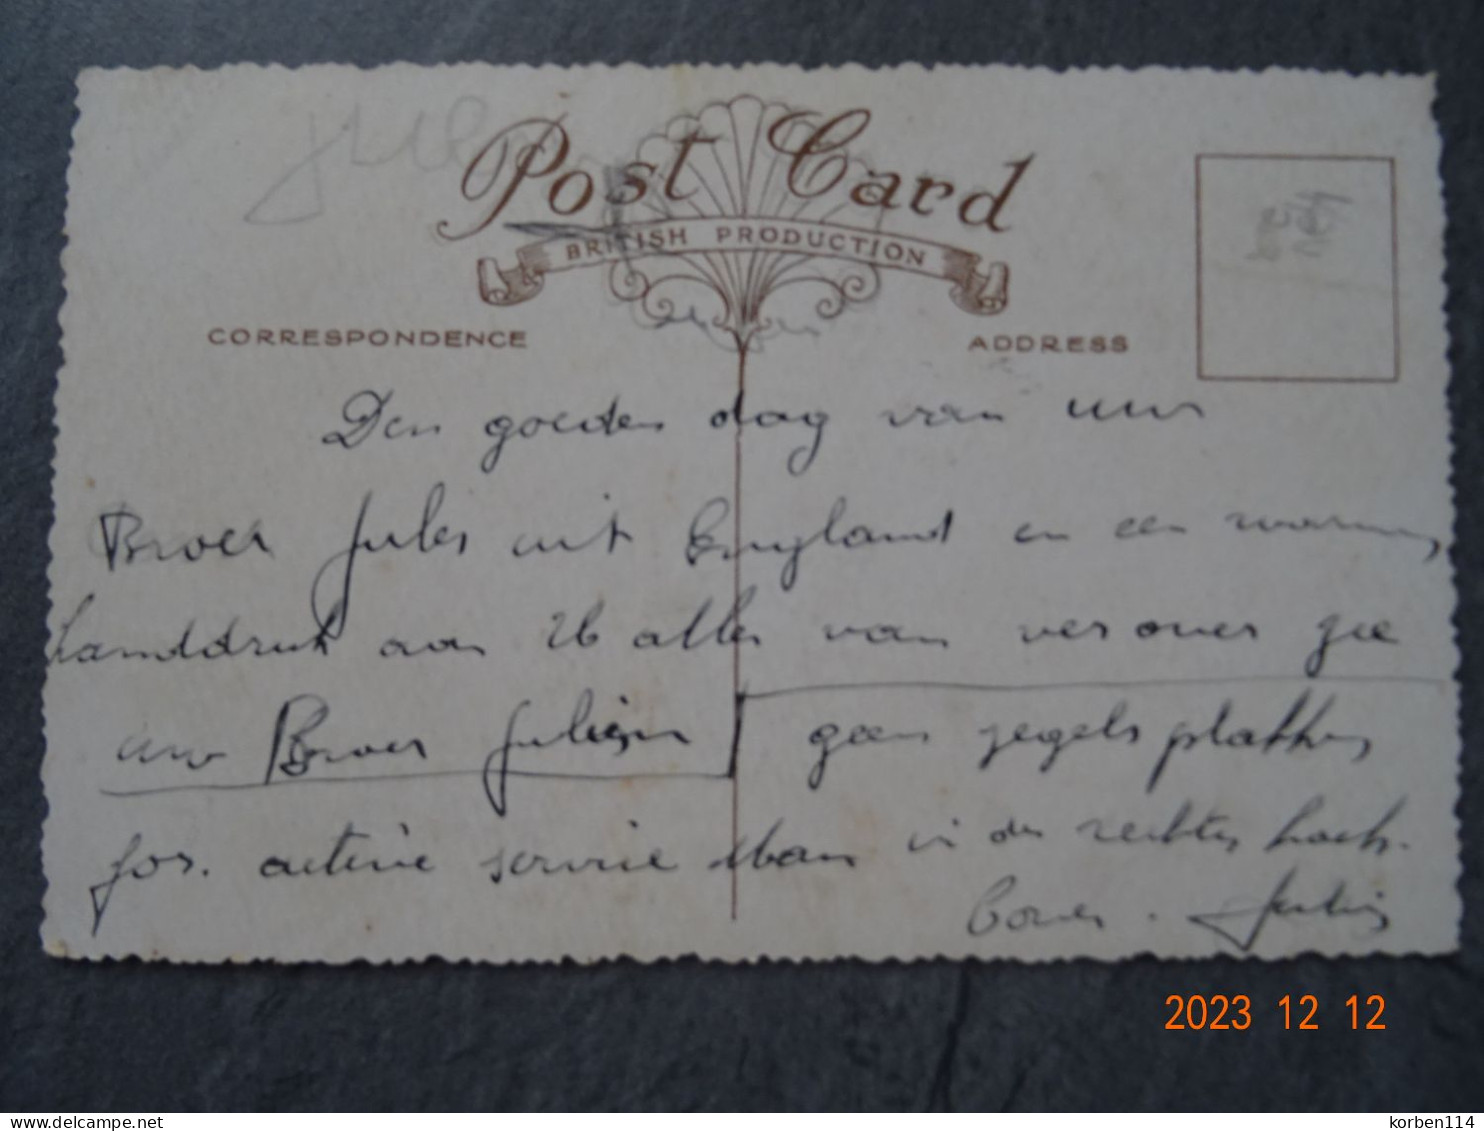 Jul
Post Card
BRITISH PRODUCTION
CORRESPONDENCE
ADDRESS
Den goeden dag van uw
Broer Jules uit England en een warme
handdruk aan U alles van verover zee
uw Broer Julien
geen zegels plakken
for. active service
in den rechtes hoek.
boven. Julien
2023 12 12
korben114